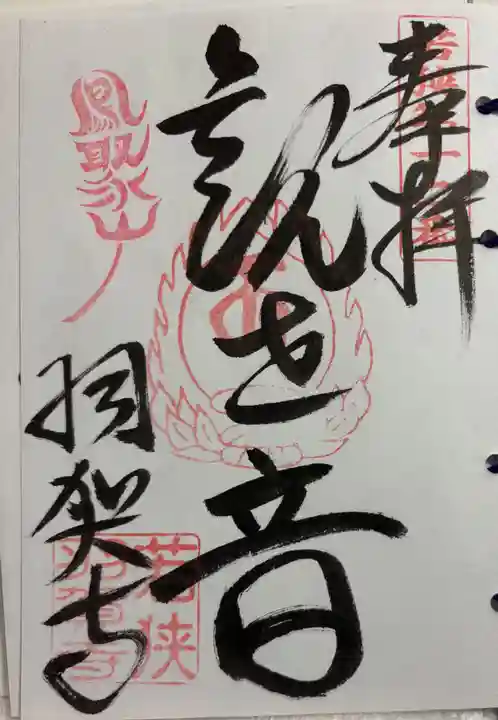 奉拝
観世音
鳳聚山
羽賀寺
若狭
羽賀寺